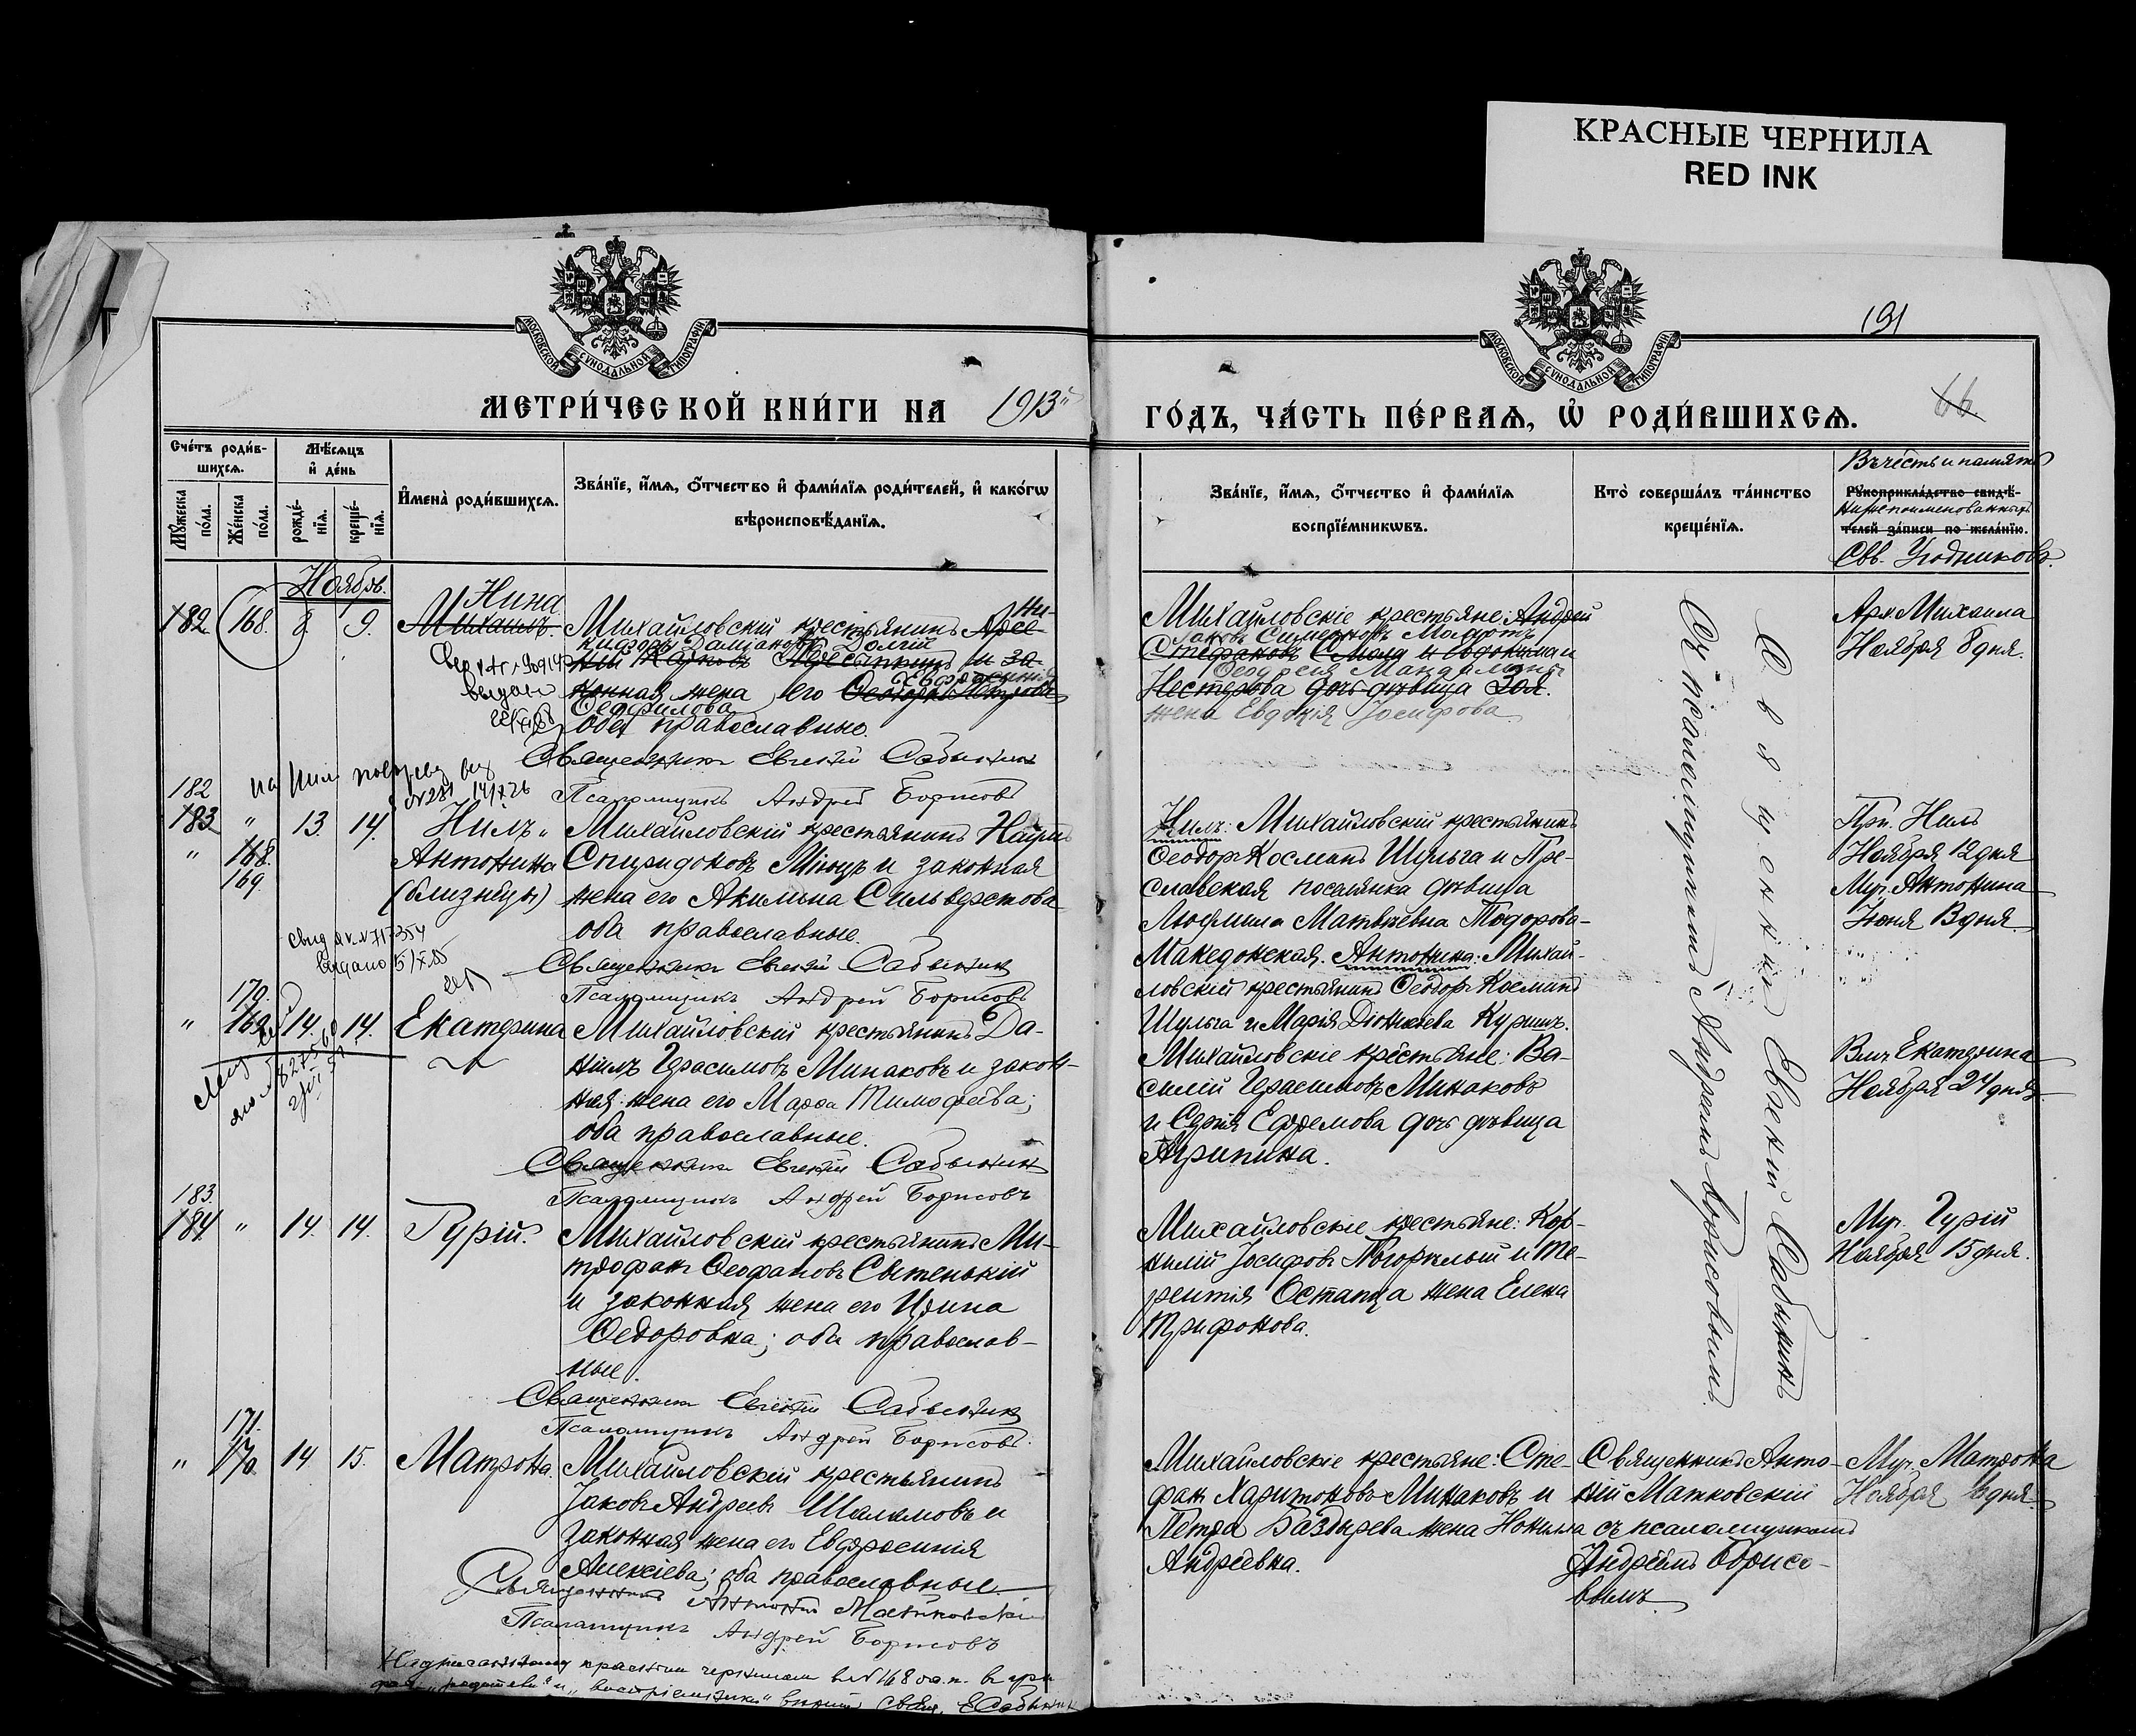 КРАСНЫЕ ЧЕРНИЛА
RED INK
191
66
МОСКОВСКОЙ СѴНОДАЛЬНОЙ ТИПОГРАФІИ
МОСКОВСКОЙ СѴНОДАЛЬНОЙ ТИПОГРАФІИ
МЕТРИ́ЧЕСКОЙ КНИ́ГИ НА 1913й
ГО́ДЪ, ЧА́СТЬ ПЕ́РВАѦ, Ѡ҆ РОДИ́ВШИХСѦ.
Счетъ роди́в-
шихсѧ.
Мѣсѧцъ
и҆ де́нь
Мꙋжеска
по́ла.
Же́нска
по́ла.
рожде́-
нїѧ.
креще́-
нїѧ.
И҆мена̀ роди́вшихсѧ.
Зва́нїе, и҆́мѧ, ѻ҆́тчество и҆ фами́лїѧ роди́телей, и҆ како́гѡ
вѣроисповѣ́данїѧ.
Зва́нїе, и҆́мѧ, ѻ҆́тчество и҆ фами́лїѧ
воспрїе́мникѡвъ.
Кто̀ соверша́лъ та́инство
креще́нїѧ.
Въ честь и память
Рꙋкоприкла́дство свидѣ́-
нижепоименованныхъ
телей за́писи по жела́нїю.
Свв. Угодниковъ.
Ноябрь.
182 168. 8. 9.
Нина
Михаилъ.
Михайловскій крестьянинъ Арсе-
Ни-
кифоръ Даміановъ Долгій
ній Карповъ и за-
конная жена его
Евфросинія
Ѳеофилова
оба православные.
выдано
Священникъ Евгеній Сабынинъ
Псаломщикъ Андрей Борисовъ
Михайловскіе крестьяне: Андрей
Іаковъ Симеоновъ
Стефановъ
Нестерова дочь дѣвица Зоя.
жена Евдокія Іосифова
Арх. Михаила
Ноября 8 дня.
Священникъ Евгеній Сабынинъ
Съ псаломщикомъ Андреемъ Борисовымъ.
182
183 " 13. 14. Нилъ.
" 168. Антонина
169. (близнецы)
№281
Михайловскій крестьянинъ
Спиридоновъ и законная
жена его Акилина Сильверстова
оба православные.
Священникъ Евгеній Сабынинъ
Псаломщикъ Андрей Борисовъ
Нилъ: Михайловскій крестьянинъ
Ѳеодоръ Косминъ Шульга и Пре-
славская поселянка дѣвица
Людмила Матвѣевна Тодорова-
Македонская. Антонина: Михай-
ловскій крестьянинъ Ѳеодоръ Косминъ
Шульга и Марія Діонисіева
Прп. Нилъ
Ноября 12 дня
Муч. Антонина
Іюня дня
выдано
170.
" 169. 14. 14. Екатерина
Михайловскій крестьянинъ Да-
нилъ Герасимовъ Минаковъ и закон-
ная жена его Марѳа Тимофеева;
оба православные.
Священникъ Евгеній Сабынинъ
Псаломщикъ Андрей Борисовъ
Михайловскіе крестьяне: Ва-
силій Герасимовъ Минаковъ
и Сергія Ефремова дочь дѣвица
Агрипина.
Влмч. Екатерина
Ноября 24 дня.
183.
184 " 14. 14. Гурій.
Михайловскій крестьянинъ Ми-
трофанъ Ѳеофановъ Сытенькій
и законная жена его Ирина
Ѳедоровна; оба православ-
ные.
Священникъ Евгеній Сабынинъ
Псаломщикъ Андрей Борисовъ.
Михайловскіе крестьяне: Кор-
нилій Іосифовъ Погорѣлый и Те-
рентія Остапца жена Елена
Трифонова.
Муч. Гурій
Ноября 15 дня.
171.
" 170. 14 15. Матрона.
Михайловскій крестьянинъ
Іаковъ Андреевъ Шаламовъ и
законная жена его Евфросинія
Алексіева; оба православные.
Священникъ Антоній Матковскій
Псаломщикъ Андрей Борисовъ
Михайловскіе крестьяне: Сте-
фанъ Харитоновъ Минаковъ и
Петра Баздырева жена Нонилла
Андреевна.
Священникъ Анто-
ній Матковскій
съ псаломщикомъ
Андреемъ Борисо-
вымъ.
Муч. Матрона
Ноября дня.
Надписанному красными чернилами въ № 168 об. п. въ гра-
фахъ „родители" и „воспріемники" вѣрить. Свящ. Е. Сабынинъ